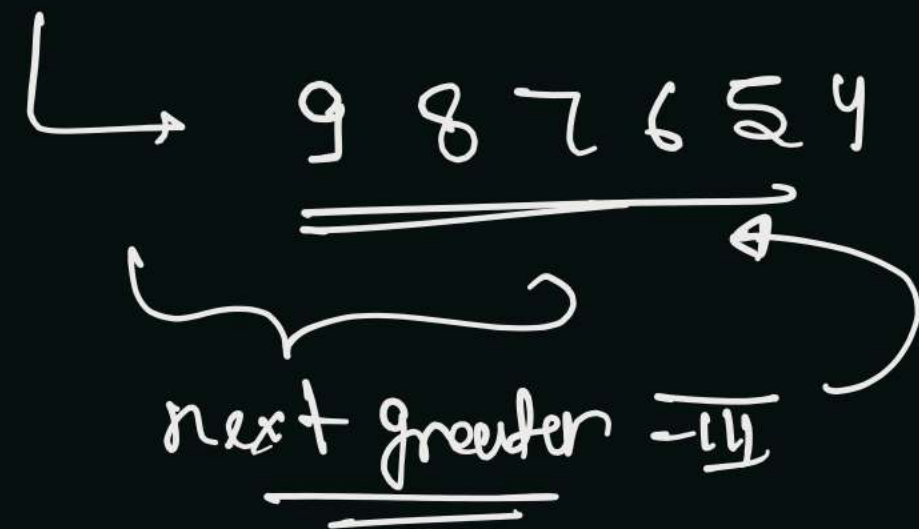 9 8 7 6 5 4
next greater - III